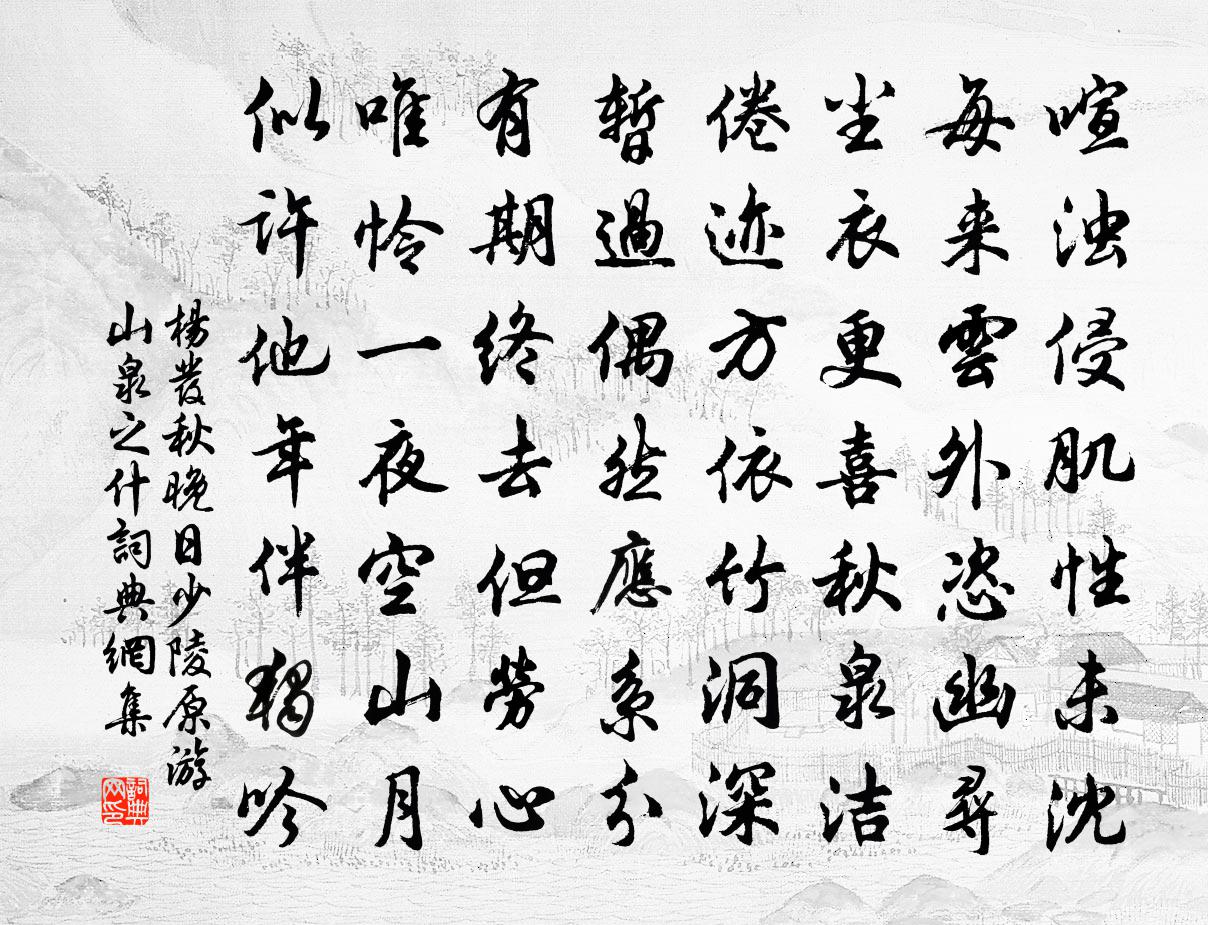 喧浊侵肌性未沈
每来雲外恣幽尋
尘衣更喜秋泉洁
倦迹方依竹洞深
暫過偶然應系分
有期終去但勞心
唯怜一夜空山月
似许他年伴独吟
楊發秋晚日少陵原游
山泉之什詞典網集
詞典
网印